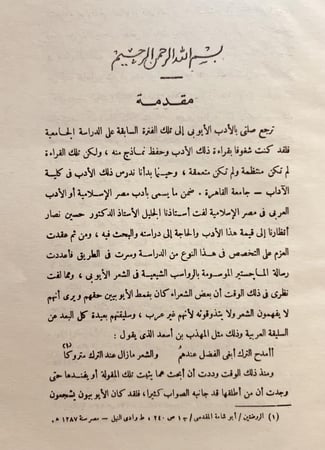 بسم الله الرحمن الرحيم
مقدمة
ترجع صلتى بالأدب الأيوبى إلى تلك الفترة السابقة على الدراسة الجامعية
فلقد كنت شغوفا بقراءة ذلك الأدب وحفظ نماذج منه ، ولكن تلك القراءة
لم تكن منتظمة ولم تكن متعمقة ، وحينما بدأنا ندرس ذلك الأدب فى كلية
الآداب – جامعة القاهرة . ضمن ما يسمى بأدب مصر الإسلامية أو الأدب
العربى فى مصر الإسلامية لفت أستاذنا الجليل الأستاذ الدكتور حسين نصار
أنظارنا إلى قيمة هذا الأدب والحاجة إلى دراسته والبحث فيه ، ومن ثم عقدت
العزم على التخصص فى هذا النوع من الدراسة وسرت فى الطريق فأعددت
رسالة الماجستير الموسومة بالرواسب الشيعية فى الشعر الأيوبى ، ومما لفت
نظرى فى ذلك الوقت أن بعض الشعراء كان يغمط الأيوبيين حقهم ويرى أنهم
لا يفهمون الشعر ولا يتذوقونه لأنهم غير عرب ، وسليقتهم بعيدة كل البعد عن
السليقة العربية وذلك مثل المهذب بن أسعد الذى يقول :
أأمدح الترك أبغى الفضل عندهمُ والشعر مازال عند الترك متروكا (١)
ومنذ ذلك الوقت وددت أن أبحث عما يثبت تلك المقولة أو يفندها حتى
وجدت أن من أطلقها قد جانبه الصواب كثيرا ، فلقد كان الأيوبيون يشجعون
(١) الروضتين / أبو شامة المقدسى / ج١ ص ٢٤٠ ، ط وادى النيل – مصر سنة ١٢٨٧ هـ .